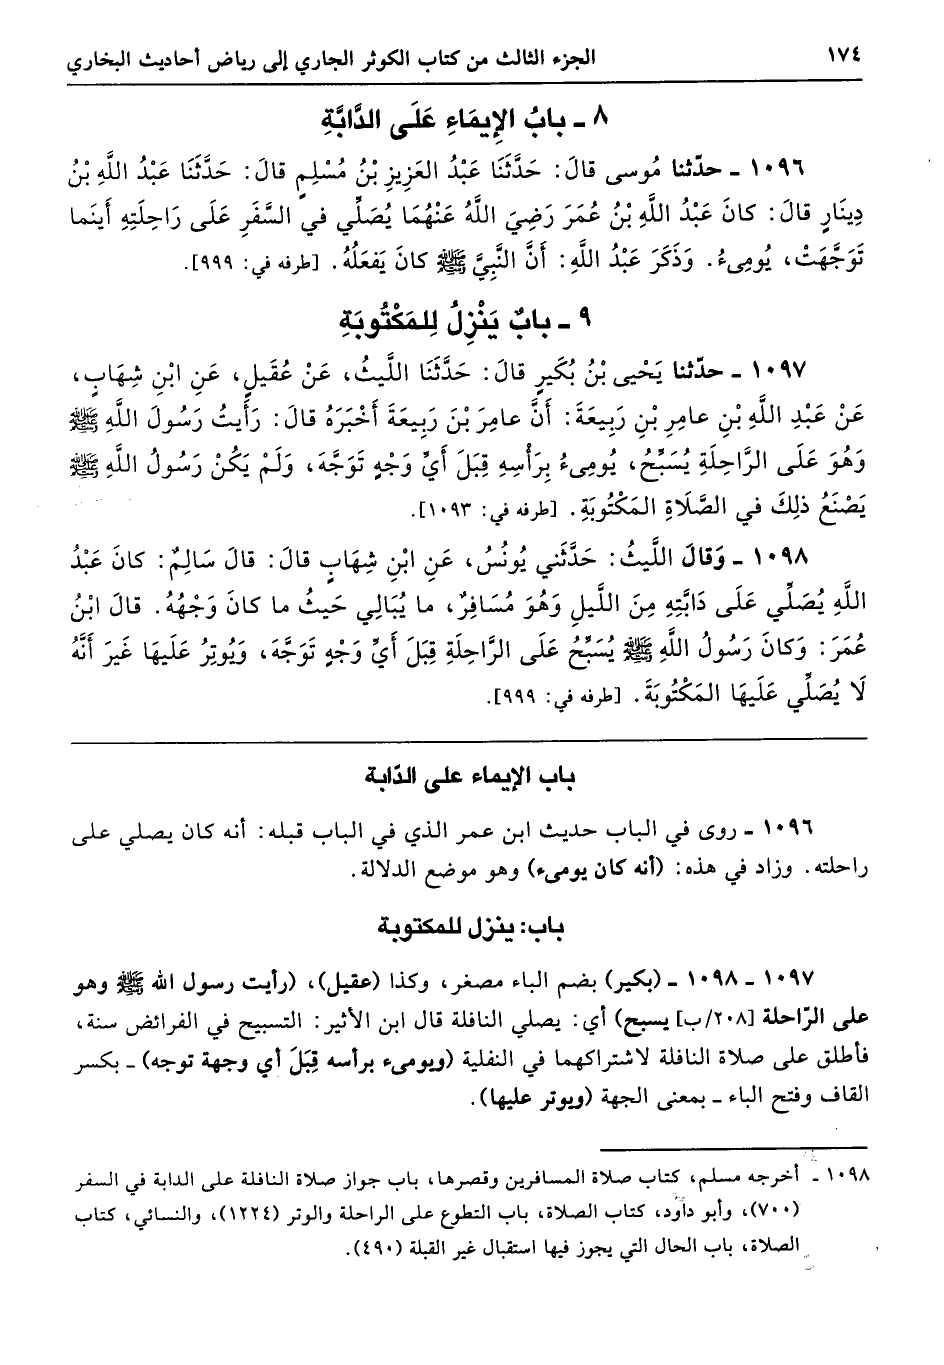 ١٧٤ الجزء الثالث من كتاب الكوثر الجاري إلى رياض أحاديث البخاري
٨ ـ بابُ الإِيمَاءِ عَلَى الدَّابَّةِ
١٠٩٦ ـ حدّثنا مُوسى قالَ: حَدَّثَنَا عَبْدُ العَزِيزِ بْنُ مُسْلِمٍ قالَ: حَدَّثَنَا عَبْدُ اللَّهِ بْنُ
دِينَارٍ قالَ: كانَ عَبْدُ اللَّهِ بْنُ عُمَرَ رَضِيَ اللَّهُ عَنْهُمَا يُصَلِّي في السَّفَرِ عَلَى رَاحِلَتِهِ أَينَما
تَوَجَّهَتْ، يُومِىءُ. وَذَكَرَ عَبْدُ اللَّهِ: أَنَّ النَّبِيَّ ﷺ كانَ يَفعَلُهُ. [طرفه في: ٩٩٩].
٩ ـ بابٌ يَنْزِلُ لِلمَكْتُوبَةِ
١٠٩٧ ـ حدّثنا يَحْيى بْنُ بُكَيرٍ قالَ: حَدَّثَنَا اللَّيثُ، عَنْ عُقَيلٍ، عَنِ ابْنِ شِهَابٍ،
عَنْ عَبْدِ اللَّهِ بْنِ عامِرِ بْنِ رَبِيعَةَ: أَنَّ عامِرَ بْنَ رَبِيعَةَ أَخْبَرَهُ قالَ: رَأَيتُ رَسُولَ اللَّهِ ﷺ
وَهُوَ عَلَى الرَّاحِلَةِ يُسَبِّحُ، يُومِىءُ بِرَأْسِهِ قِبَلَ أَيِّ وَجْهٍ تَوَجَّهَ، وَلَمْ يَكُنْ رَسُولُ اللَّهِ ﷺ
يَصْنَعُ ذلِكَ في الصَّلَاةِ المَكْتُوبَةِ. [طرفه في: ١٠٩٣].
١٠٩٨ ـ وَقالَ اللَّيثُ: حَدَّثَني يُونُسُ، عَنِ ابْنِ شِهَابٍ قالَ: قالَ سَالِمٌ: كانَ عَبْدُ
اللَّهِ يُصَلِّي عَلَى دَابَّتِهِ مِنَ اللَّيلِ وَهُوَ مُسَافِرٌ، ما يُبَالِي حَيثُ ما كانَ وَجْهُهُ. قالَ ابْنُ
عُمَرَ: وَكانَ رَسُولُ اللَّهِ ﷺ يُسَبِّحُ عَلَى الرَّاحِلَةِ قِبَلَ أَيِّ وَجْهٍ تَوَجَّهَ، وَيُوتِرُ عَلَيهَا غَيرَ أَنَّهُ
لَا يُصَلِّي عَلَيهَا المَكْتُوبَةَ. [طرفه في: ٩٩٩].
باب الإيماء على الدّابة
١٠٩٦ ـ روى في الباب حديث ابن عمر الذي في الباب قبله: أنه كان يصلي على
راحلته. وزاد في هذه: (أنه كان يومىء) وهو موضع الدلالة.
باب: ينزل للمكتوبة
١٠٩٧ ـ ١٠٩٨ ـ (بكير) بضم الباء مصغر، وكذا (عقيل)، (رأيت رسول الله ﷺ وهو
على الرّاحلة [٢٠٨/ب] يسبح) أي: يصلي النافلة قال ابن الأثير: التسبيح في الفرائض سنة،
فأطلق على صلاة النافلة لاشتراكهما في النفلية (ويومىء برأسه قِبَلَ أي وجهة توجه) ـ بكسر
القاف وفتح الباء ـ بمعنى الجهة (ويوتر عليها).
١٠٩٨ ـ أخرجه مسلم، كتاب صلاة المسافرين وقصرها، باب جواز صلاة النافلة على الدابة في السفر
(٧٠٠)، وأبو داود، كتاب الصلاة، باب التطوع على الراحلة والوتر (١٢٢٤)، والنسائي، كتاب
الصلاة، باب الحال التي يجوز فيها استقبال غير القبلة (٤٩٠).